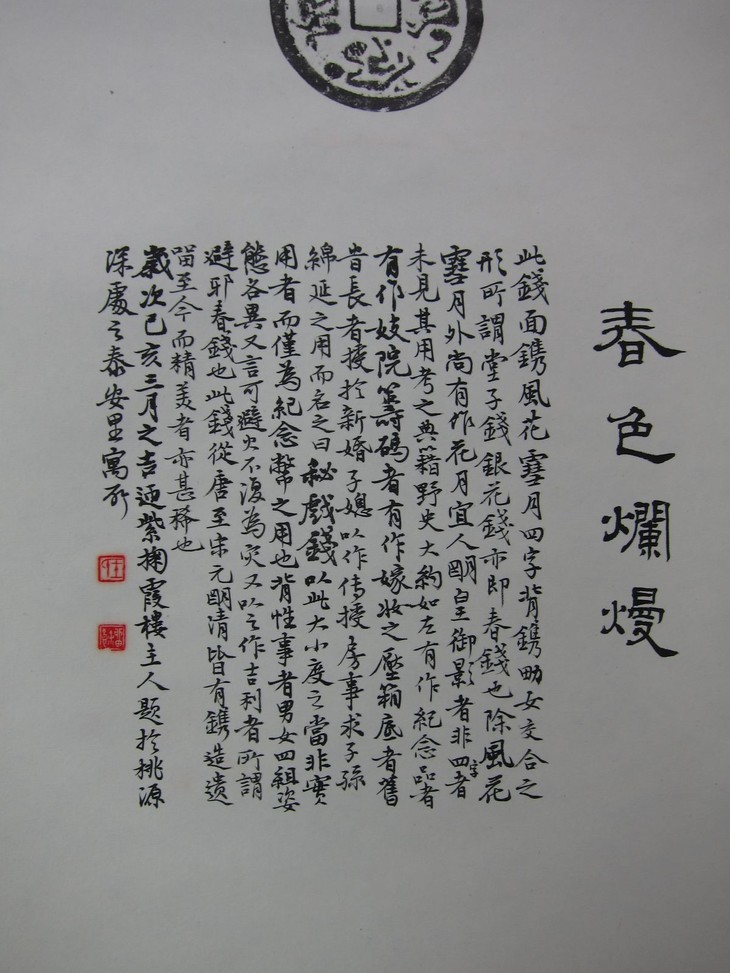 春色爛熳
此錢面鐫風花雪月四字背鐫男女交合之
形所謂堂子錢銀花錢亦即春錢也除風花
雪月外尚有作花月宜人明皇御影者非四字者
未見其用考之典籍野史大約如左有作紀念品者
有作妓院籌碼者有作嫁妝之壓箱底者舊
昔長者授於新婚子媳以作傳授房事求子孫
綿延之用而名之曰秘戲錢以此大小度之當非實
用者而僅為紀念幣之用也背性事者男女四組姿
態各異又言可避火不復為灾又以之作吉利者所謂
避邪春錢也此錢從唐至宋元明清皆有鐫造遺
留至今而精美者亦甚稀也
歲次己亥三月之吉迎紫掬霞樓主人題於桃源
深處之泰安里寓所